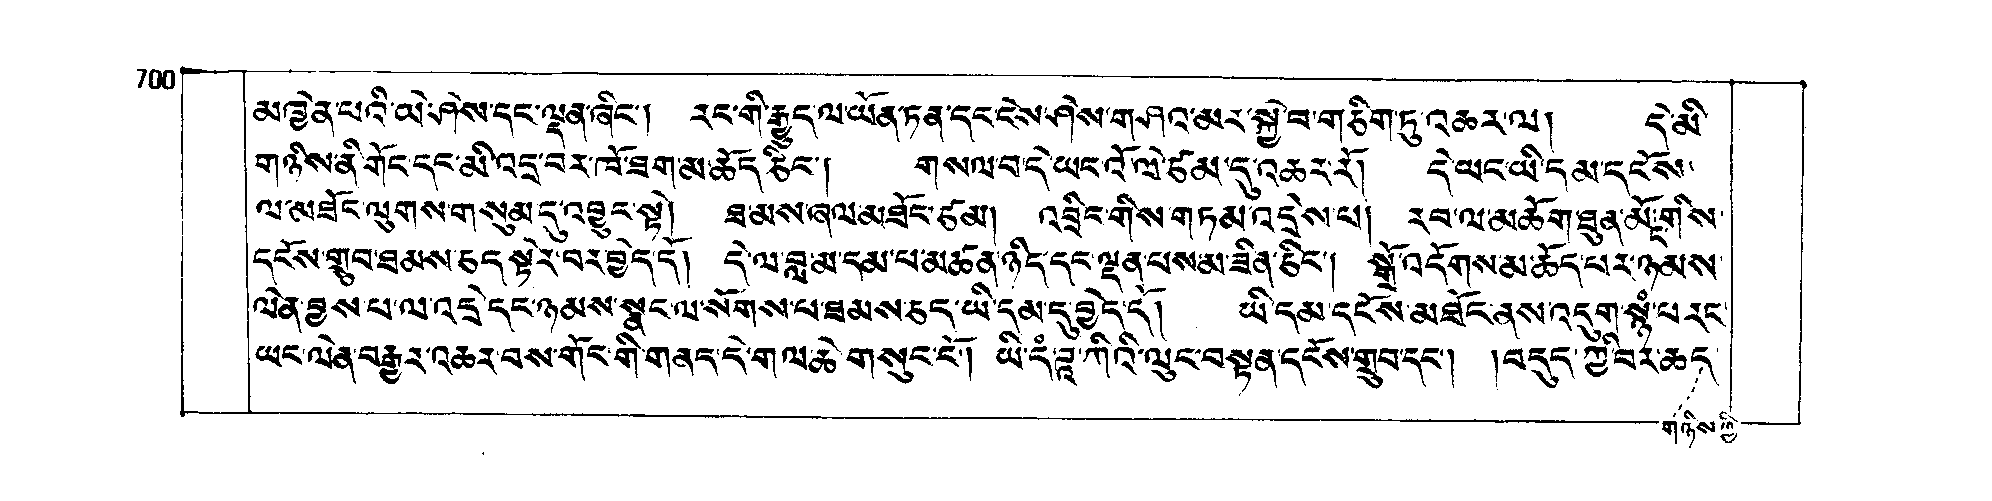 700
མ་ཁྱེན་པའི་ཡེ་ཤེས་དང་ལྡན་ཞིང་། རང་གི་རྒྱུད་ལ་ཡོན་ཏན་དང་ངེས་ཤེས་གཤའ་མར་སྐྱེ་བ་གཅིག་ཏུ་འཆར་ལ། དེ་མི
གཉིས་ནི་གོང་དང་མི་འདྲ་བར་ཁོ་ཐག་མ་ཆོད་ཅིང་། གསལ་བ་དེ་ཡང་འོ་ཀྲེ་ཙམ་དུ་འཆར་རོ། དེ་ཡང་ཡི་དམ་དངོས་
ལ་མཐོང་ལུགས་གསུམ་དུ་འབྱུང་སྟེ། ཐ་མས་ཞལ་མཐོང་ཙམ། འབྲིང་གིས་གཏམ་འདྲེས་པ། རབ་ལ་མཆོག་ཐུན་མོང་གིས་
དངོས་གྲུབ་ཐམས་ཅད་སྟེར་བར་བྱེད་དོ། དེ་ལ་བླ་མ་དམ་པ་མཚན་ཉིད་དང་ལྡན་པས་མ་ཟིན་ཅིང་། སྒྲོ་འདོགས་མ་ཆོད་པར་ཉམས་
ལེན་བྱས་པ་ལ་འདྲེ་དང་ཉམས་སྣང་ལ་སོགས་པ་ཐམས་ཅད་ཡི་དམ་དུ་བྱེད་དོ། ཡི་དམ་དངོས་མཐོང་ནས་འདུག་སྙཾ་པ་རང་
ཡང་ལེན་བརྒྱར་འཆར་བས་གོང་གི་གནད་དེ་གལ་ཆེ་གསུང་ངོ༌། ཡི་དཾ་ཌཱ་ཀིའི་ལུང་བསྟན་དངོས་གྲུབ་དང་། །བདུད་ཀྱི་བར་ཆད་
གཉིས་ཀྱི